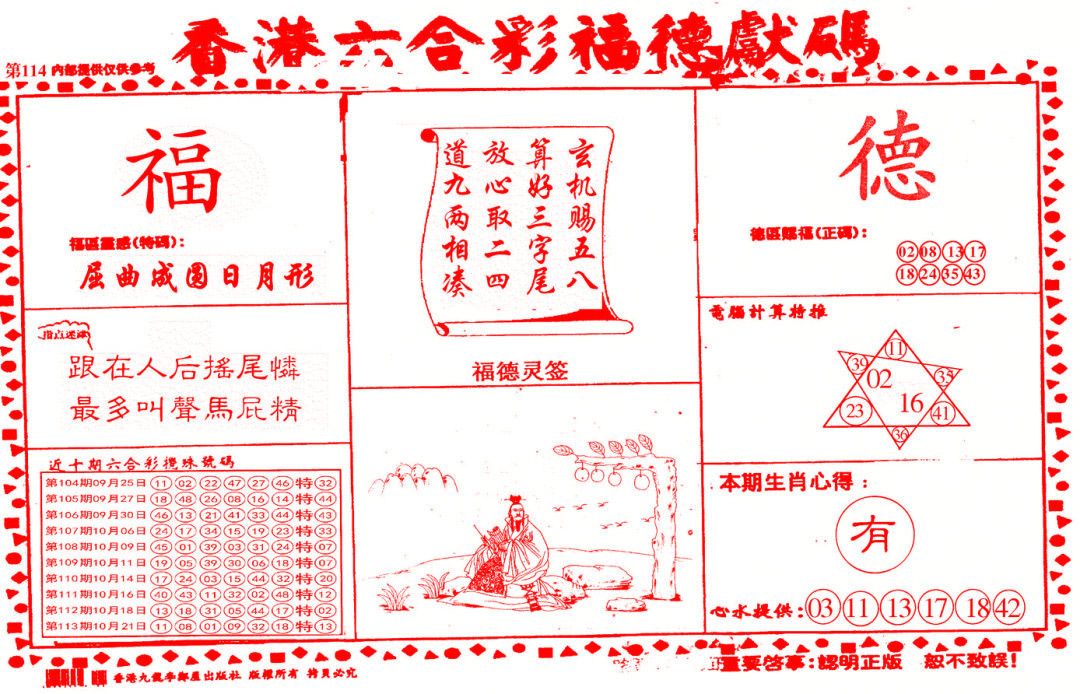 香港六合彩福德獻碼
第114 内部提供仅供参考
福
福區靈感(特碼):
屈曲成圆日月形
指点迷津
跟在人后搖尾憐
最多叫聲馬屁精
近十期六合彩攪珠號碼
第104期09月25日 11 02 22 47 27 46 特 32
第105期09月27日 18 48 26 08 16 14 特 44
第106期09月30日 46 13 21 41 33 44 特 43
第107期10月06日 24 17 34 15 19 23 特 33
第108期10月09日 45 01 39 03 31 24 特 07
第109期10月11日 19 05 39 30 06 18 特 07
第110期10月14日 17 24 03 15 44 32 特 20
第111期10月16日 40 43 11 32 02 48 特 12
第112期10月18日 13 18 31 05 44 17 特 02
第113期10月21日 11 08 01 09 32 18 特 13
玄机赐五八
算好三字尾
放心取二四
道九两相凑
福德灵签
德
德區賜福(正碼):
02 08 13 17
18 24 35 43
電腦計算特推
11
39 35
02
16
23 41
36
本期生肖心得:
有
心水提供:03 11 13 17 18 42
重要啓事:認明正版 恕不致誤!
版權所有 拷貝必究